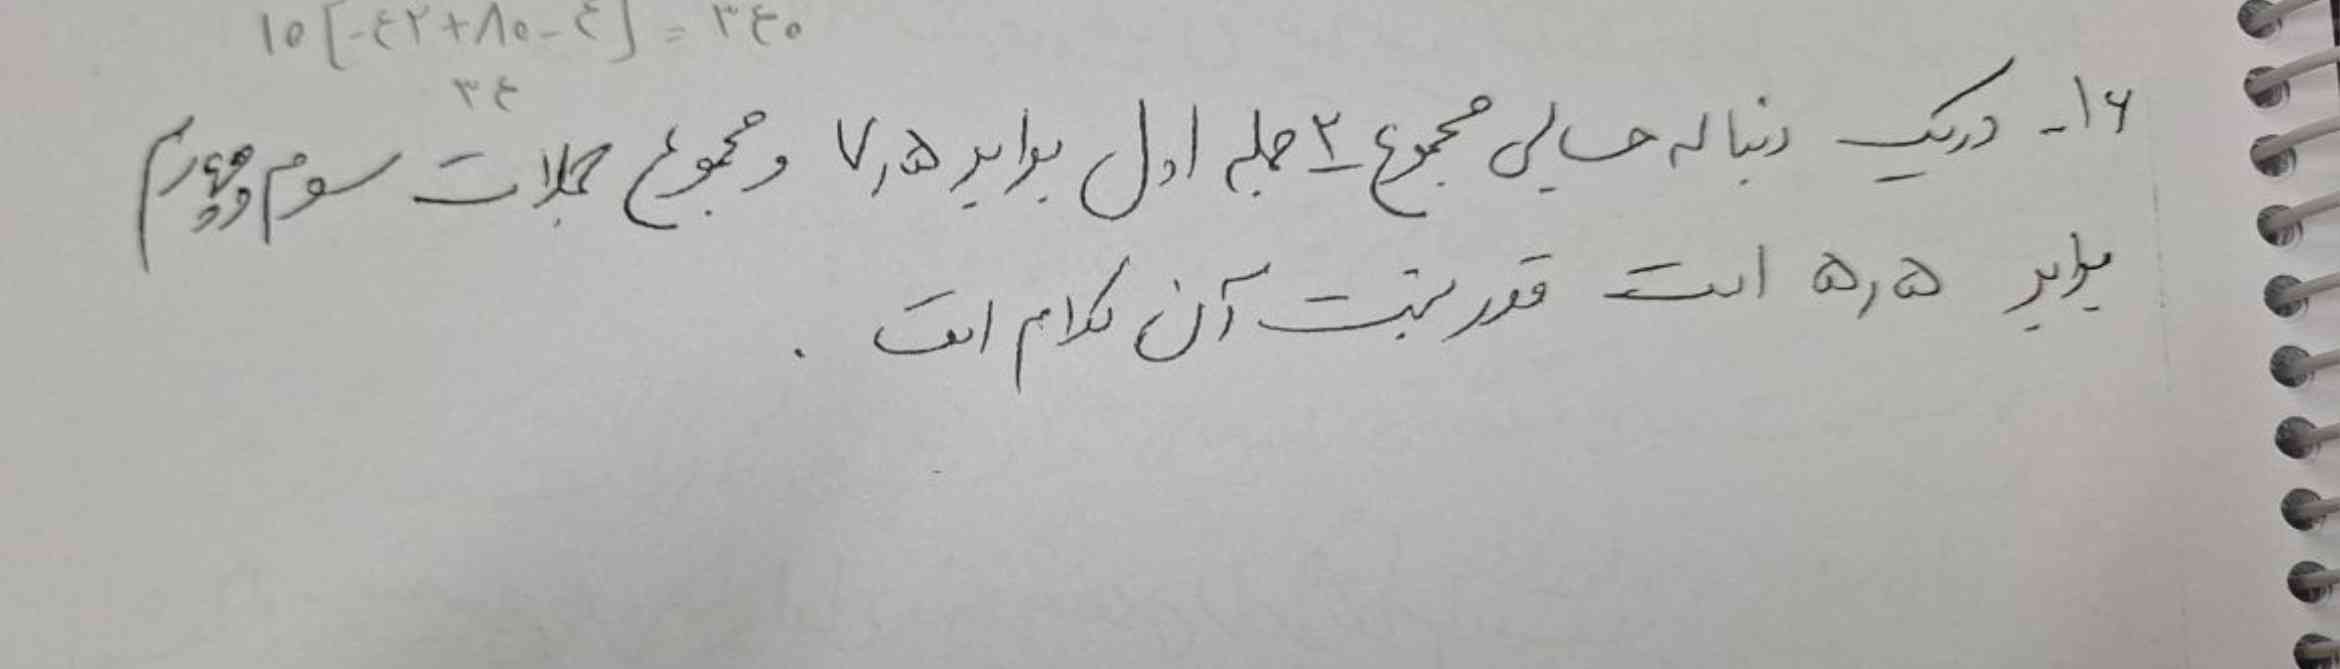 ۱۵[-۴۲+۸۰-۴] = ۳۴۰
۳۴
۱۶- در یک دنباله حسابی مجموع ۲ جمله اول برابر ۷٫۵ و مجموع جملات سوم و چهارم
برابر ۵٫۵ است قدر نسبت آن کدام است .